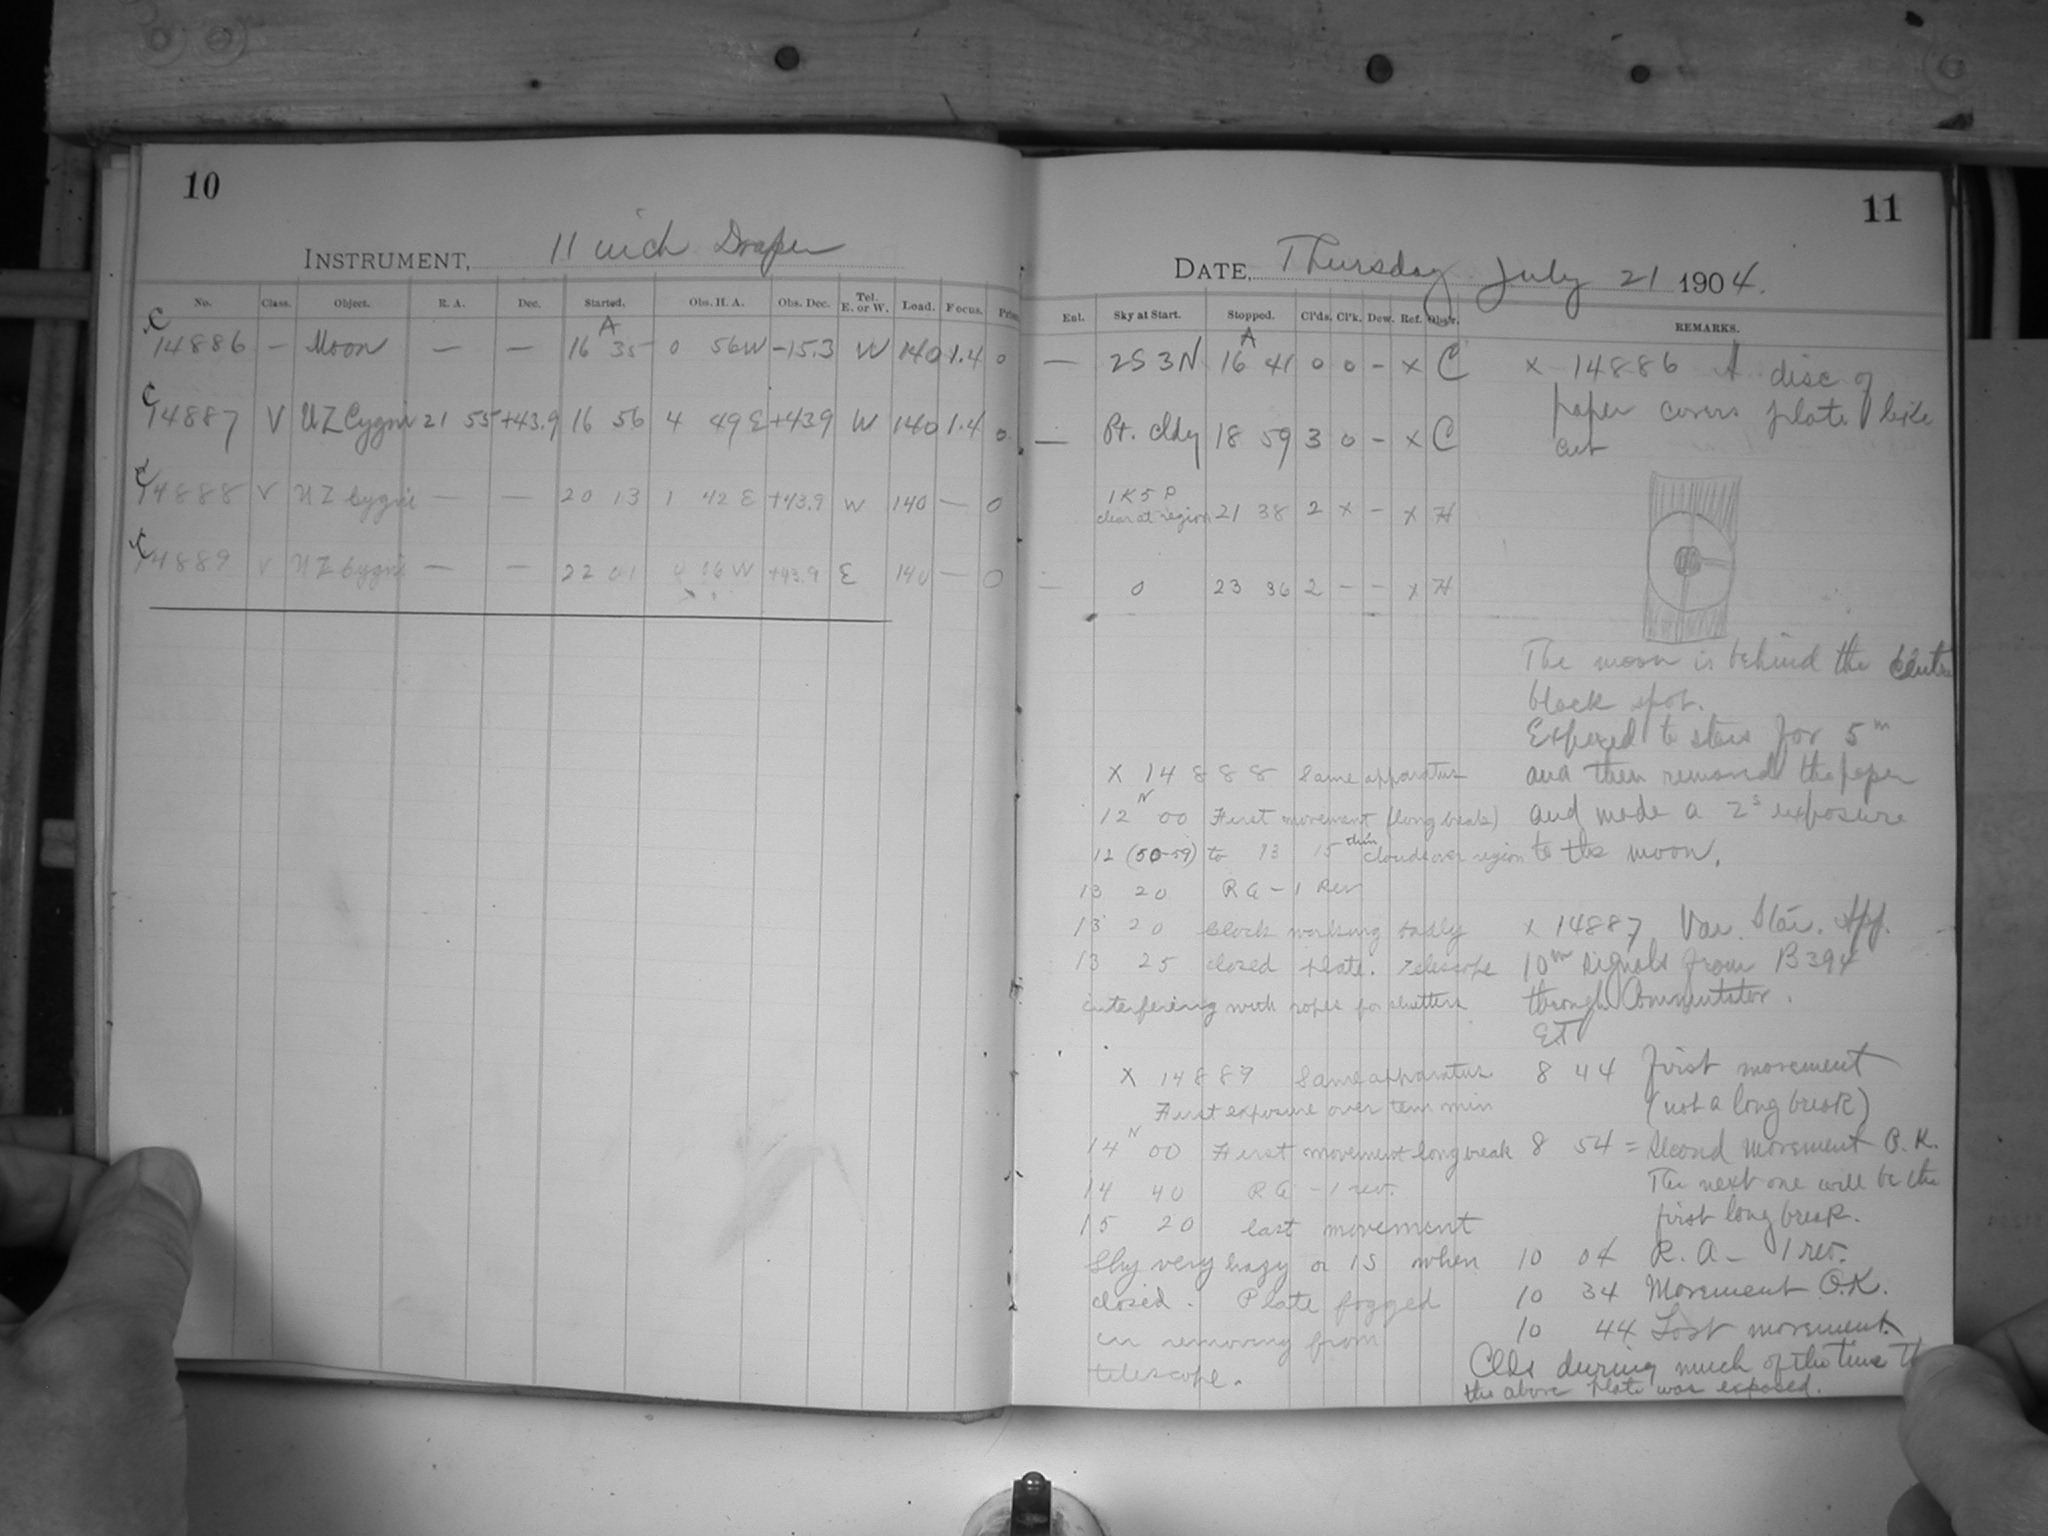 10
INSTRUMENT, 11 inch Draper
No. Class. Object. R. A. Dec. Started, Obs. H. A. Obs. Dec. Tel. E. or W. Load. Focus.
C 14886 — Moon — — 16 A 35 0 56W -15.3 W 140 1.4 0
C 14887 V UZ Cygni 21 55 +43.9 16 56 4 49 E +43.9 W 140 1.4 0
C 14888 V UZ Cygni — — 20 13 1 42 E +43.9 W 140 — 0
C 14889 V UZ Cygni — — 22 01 0 16 W +43.9 E 140 — 0
11
DATE, Thursday July 21 1904.
Ent. Sky at Start. Stopped. Cl'ds. Cl'k. Dew. Ref. Obs'r. REMARKS.
— 2S 3N 16 A 41 0 0 - x C
— Pt. Cldy 18 59 3 0 - x C
1K5P
clear at region 21 38 2 x - x H
— 0 23 36 2 - - x H
x 14888 Same apparatus
12 N 00 First movement (long break)
12 (50-59) to 13 15 thin clouds over region
13 20 RA - 1 Rev
13 20 Clock working badly
13 25 closed plate. Telescope
interfering with ropes for shutters
x 14889 Same apparatus
First exposure over ten min
14 N 00 First movement long break
14 40 RA - 1 rev.
15 20 last movement
Sky very hazy or 1S when
closed. Plate fogged
in removing from
telescope.
x 14886 A disc of
paper covers plate like
cut
The moon is behind the
black spot.
Exposed to stars for 5m
and then removed the paper
and made a 2s exposure
to the moon.
x 14887 Var. Star. App.
10m signals from B394
through Commutator.
E.T.
8 44 First movement
(not a long break)
8 54 = Second movement O.K.
The next one will be the
first long break.
10 04 R.A - 1 rev.
10 34 Movement O.K.
10 44 Last movement.
Clds during much of the time
the above plate was exposed.